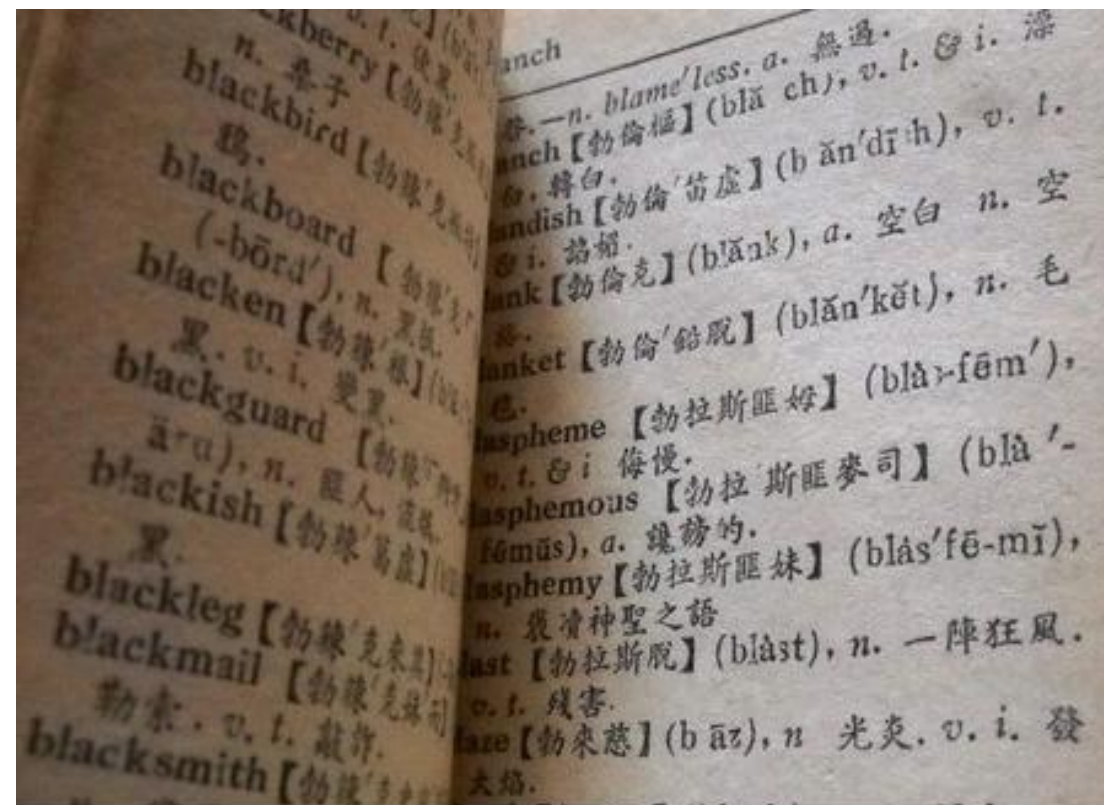 ckberry【勃辣′克
n. 桑子
blackbird【勃辣′克
鴉.
blackboard【勃辣′克
(-bōrd′), n. 黑板.
blacken【勃辣′根】
黑. v. i. 變黑.
blackguard【勃辣′
n. 匪人,
blackish【勃辣′
黑.
blackleg【勃辣′克來其】
blackmail【勃辣′克
勒索. v. t. 敲詐.
blacksmith【勃辣′克
anch
咎.—n. blame′less. a. 無過.
anch【勃倫樞】(blă ch), v. t. & i. 漂
白, 轉白.
andish【勃倫′苗虛】(b ăn′dĭ h), v. t.
& i. 諂媚.
ank【勃倫克】(blănk), a. 空白 n. 空
lanket【勃倫′鉛脫】(blăn′kĕt), n. 毛
毯.
laspheme【勃拉斯匪姆】(blȧ -fēm′),
v. t. & i 侮慢.
lasphemous【勃拉斯匪麥司】(blȧ ′-
fēmŭs), a. 讒謗的.
lasphemy【勃拉斯匪妹】(blȧs′fē-mĭ),
n. 褻凟神聖之語
last【勃拉斯脫】(blȧst), n. 一陣狂風.
v. t. 殘害.
laze【勃來慈】(b āz), n 光炎. v. i. 發
大焰.